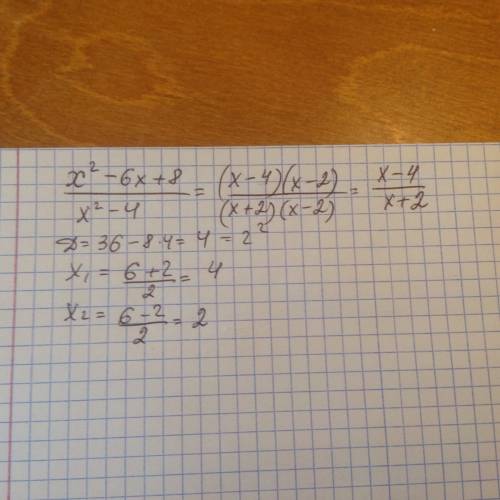 (x² - 6x + 8)/(x² - 4) = ((x-4)(x-2))/((x+2)(x-2)) = (x-4)/(x+2)
D = 36 - 8·4 = 4 = 2²
x₁ = (6+2)/2 = 4
x₂ = (6-2)/2 = 2